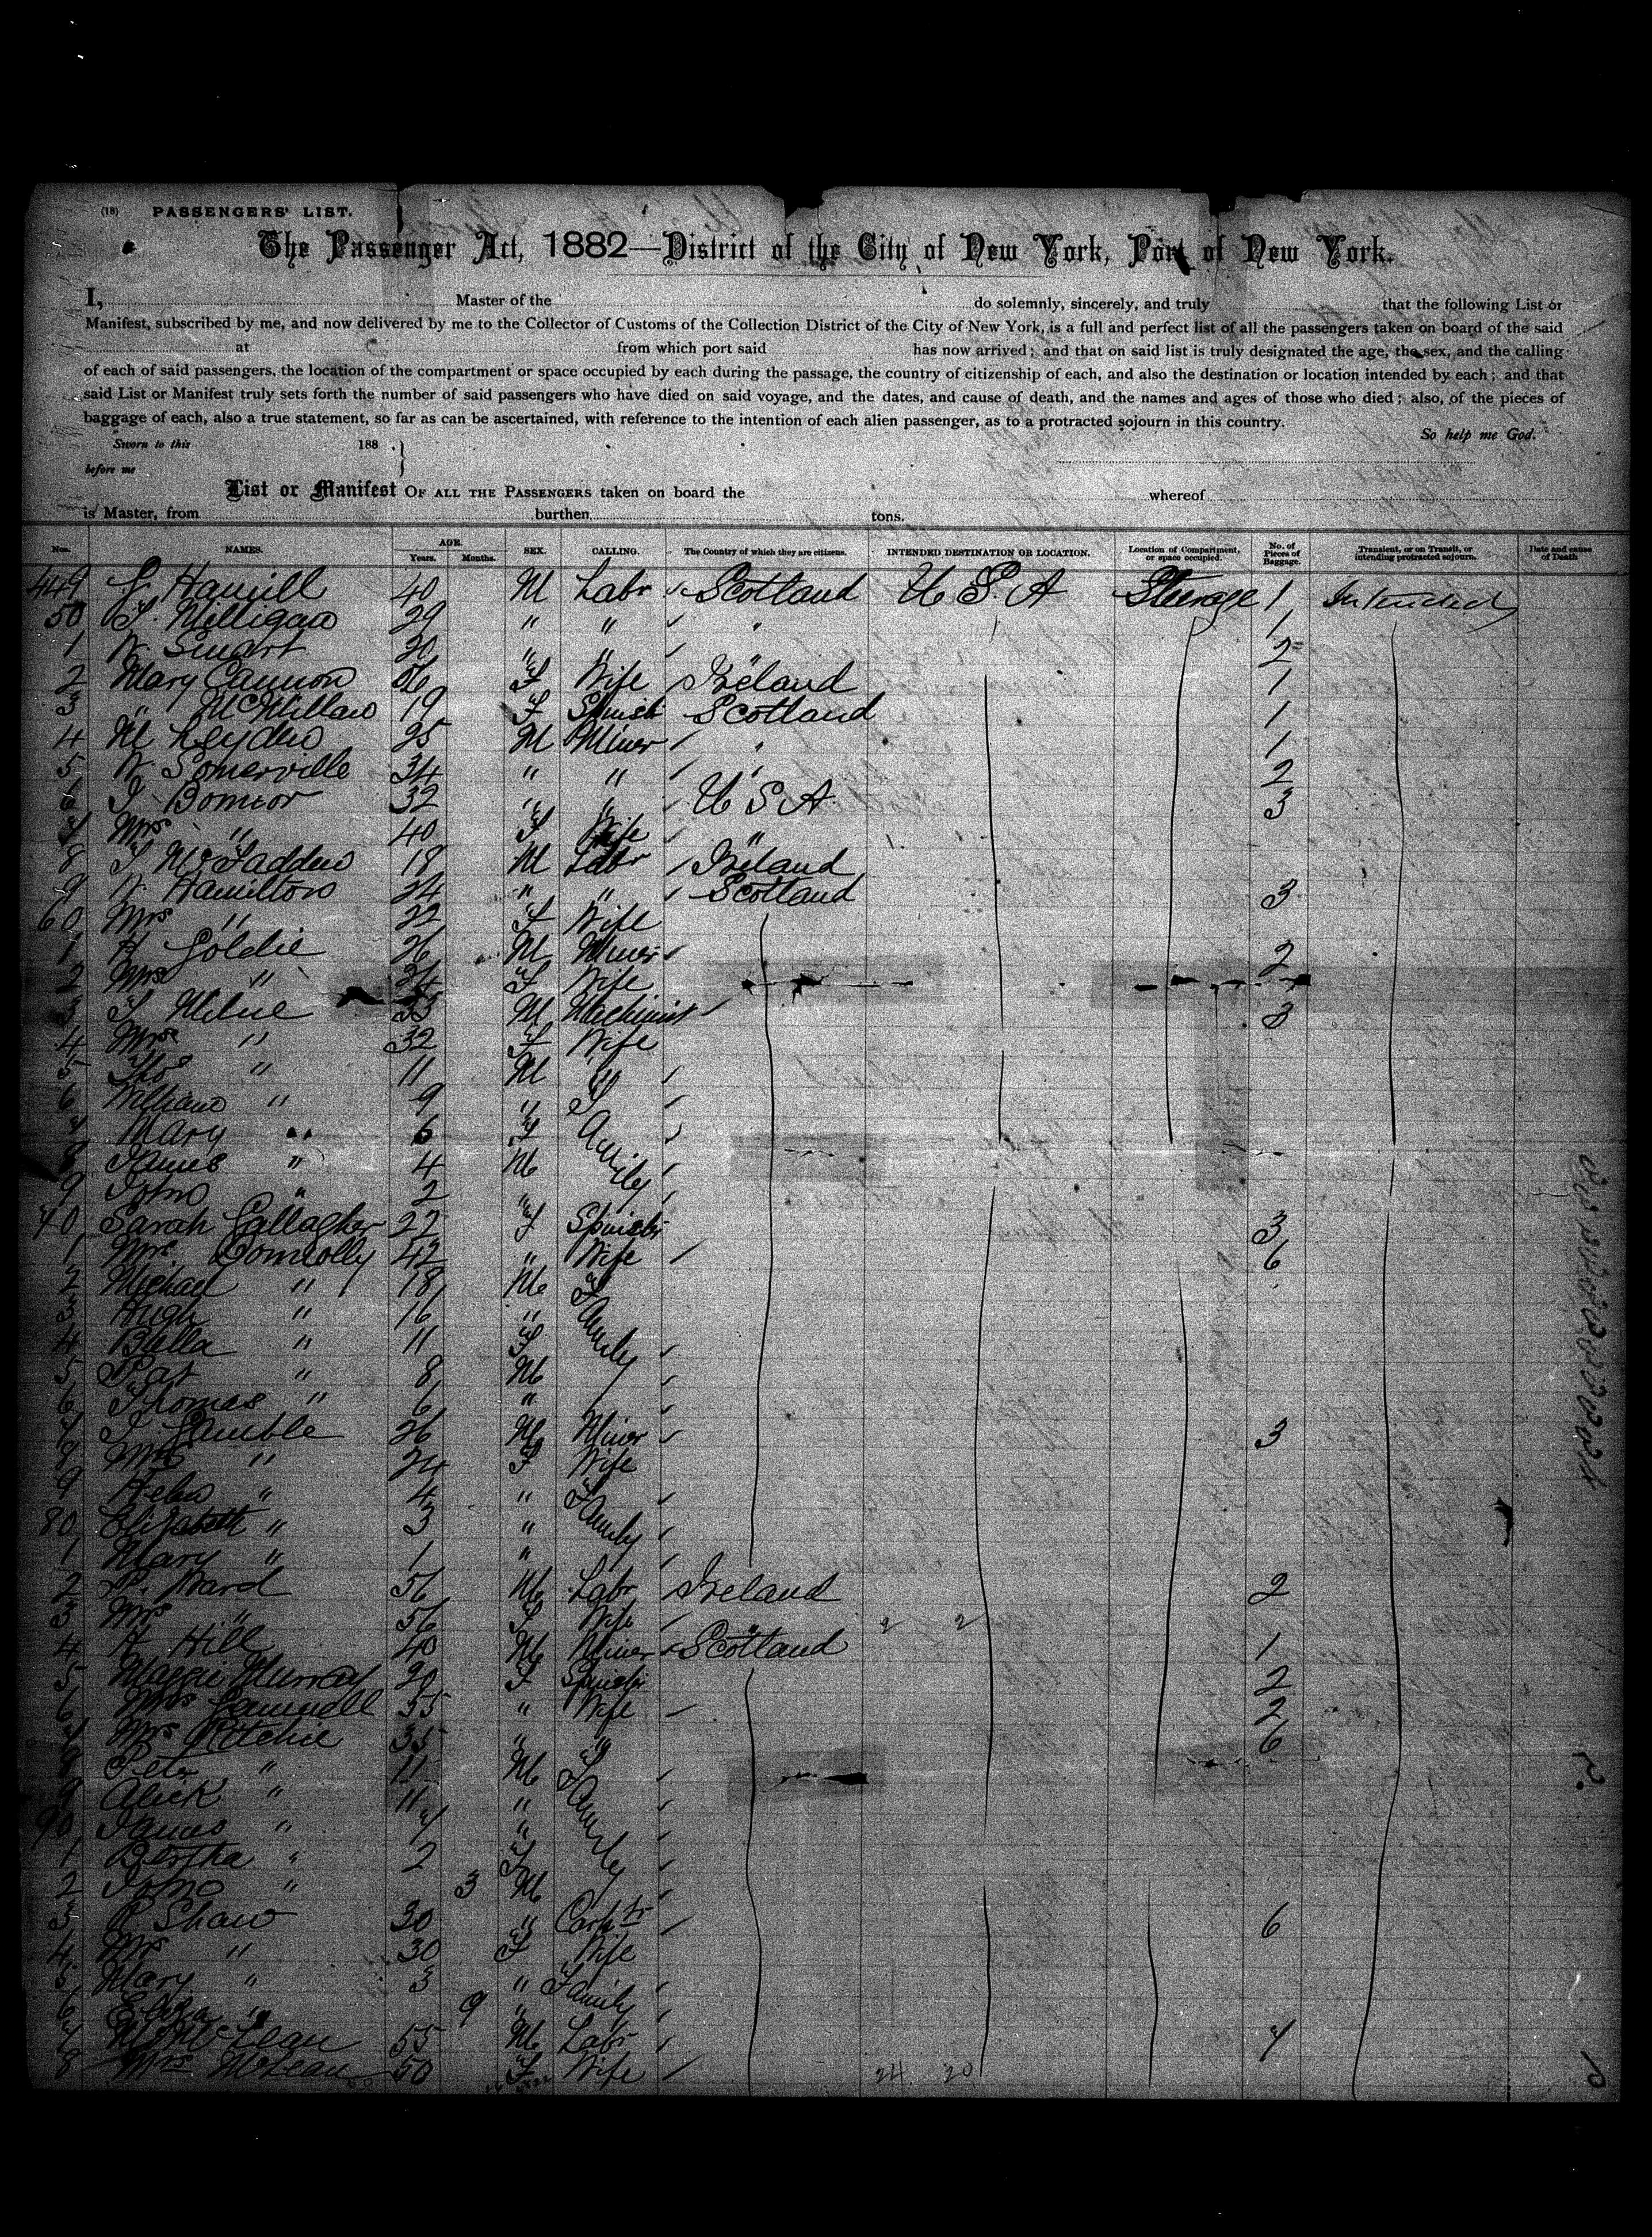 (18) PASSENGERS' LIST.
The Passenger Act, 1882—District of the City of New York, Port of New York.
I, Master of the do solemnly, sincerely, and truly that the following List or
Manifest, subscribed by me, and now delivered by me to the Collector of Customs of the Collection District of the City of New York, is a full and perfect list of all the passengers taken on board of the said
at from which port said has now arrived; and that on said list is truly designated the age, the sex, and the calling
of each of said passengers, the location of the compartment or space occupied by each during the passage, the country of citizenship of each, and also the destination or location intended by each; and that
said List or Manifest truly sets forth the number of said passengers who have died on said voyage, and the dates, and cause of death, and the names and ages of those who died; also, of the pieces of
baggage of each, also a true statement, so far as can be ascertained, with reference to the intention of each alien passenger, as to a protracted sojourn in this country.
So help me God.
Sworn to this 188
before me
List or Manifest OF ALL THE PASSENGERS taken on board the whereof
is Master, from burthen tons.
Nos. NAMES. AGE. Years. Months. SEX. CALLING. The Country of which they are citizens. INTENDED DESTINATION OR LOCATION. Location of Compartment, or space occupied. No. of Pieces of Baggage. Transient, or on Transit, or intending protracted sojourn. Date and cause of Death
449 Hamill 40 M Labr Scotland U S. A Steerage 1 Intended
50 Milligan 29 " " " 1
1 W Smart 20 " " " 2
2 Mary Cannon F Wife Ireland 1
3 " McMillan 19 F Spinst Scotland 1
4 M Leyden 25 M Miner " 1
5 W Somerville 34 " " " 2
6 32 " " U S A 3
7 Mrs " 40 F Wife "
8 McFadden 18 M Labr Ireland
9 W Hamilton 24 " " Scotland 3
60 Mrs " 22 F Wife
1 Goldie 26 M Miner 2
2 Mrs " 24 F Wife
3 Milne 35 M Machinist 3
4 Mrs " 32 F Wife
5 Thos " 11 M Family
6 William " 9 "
7 Mary " 6 F
8 James " 4 M
9 John " 2 "
70 Sarah Gallagher 22 F Spinstr 3
1 Mrs Connolly 42 " Wife 6
2 Michael " 18 M Family
3 Hugh " 16 "
4 Bella " 11 F
5 Pat " 8 M
6 Thomas " 6 "
7 Gamble 26 M Miner 3
8 Mrs " 24 F Wife
9 Helen " 4 " Family
80 Elizabeth " 3 "
1 Mary " 1 "
2 P. Ward 56 M Labr Ireland 2
3 Mrs " 56 F Wife " 2 2
4 Hill 40 M Miner Scotland 1
5 Maggie Murray 20 F Spinstr 2
6 Mrs Gemmell 55 " Wife 2
7 Mrs Ritchie 35 " " 6
8 Peter " 11 M Family
9 Alick " 11 "
90 James " 7 "
1 Bertha " 2 F
2 John " 3 M
3 R Shaw 30 " Carptr 6
4 Mrs " 30 F Wife
5 Mary " 3 " Family
6 Eliza " 9 "
7 McLean 55 M Labr 7
8 Mrs McLean 50 F Wife 24 20